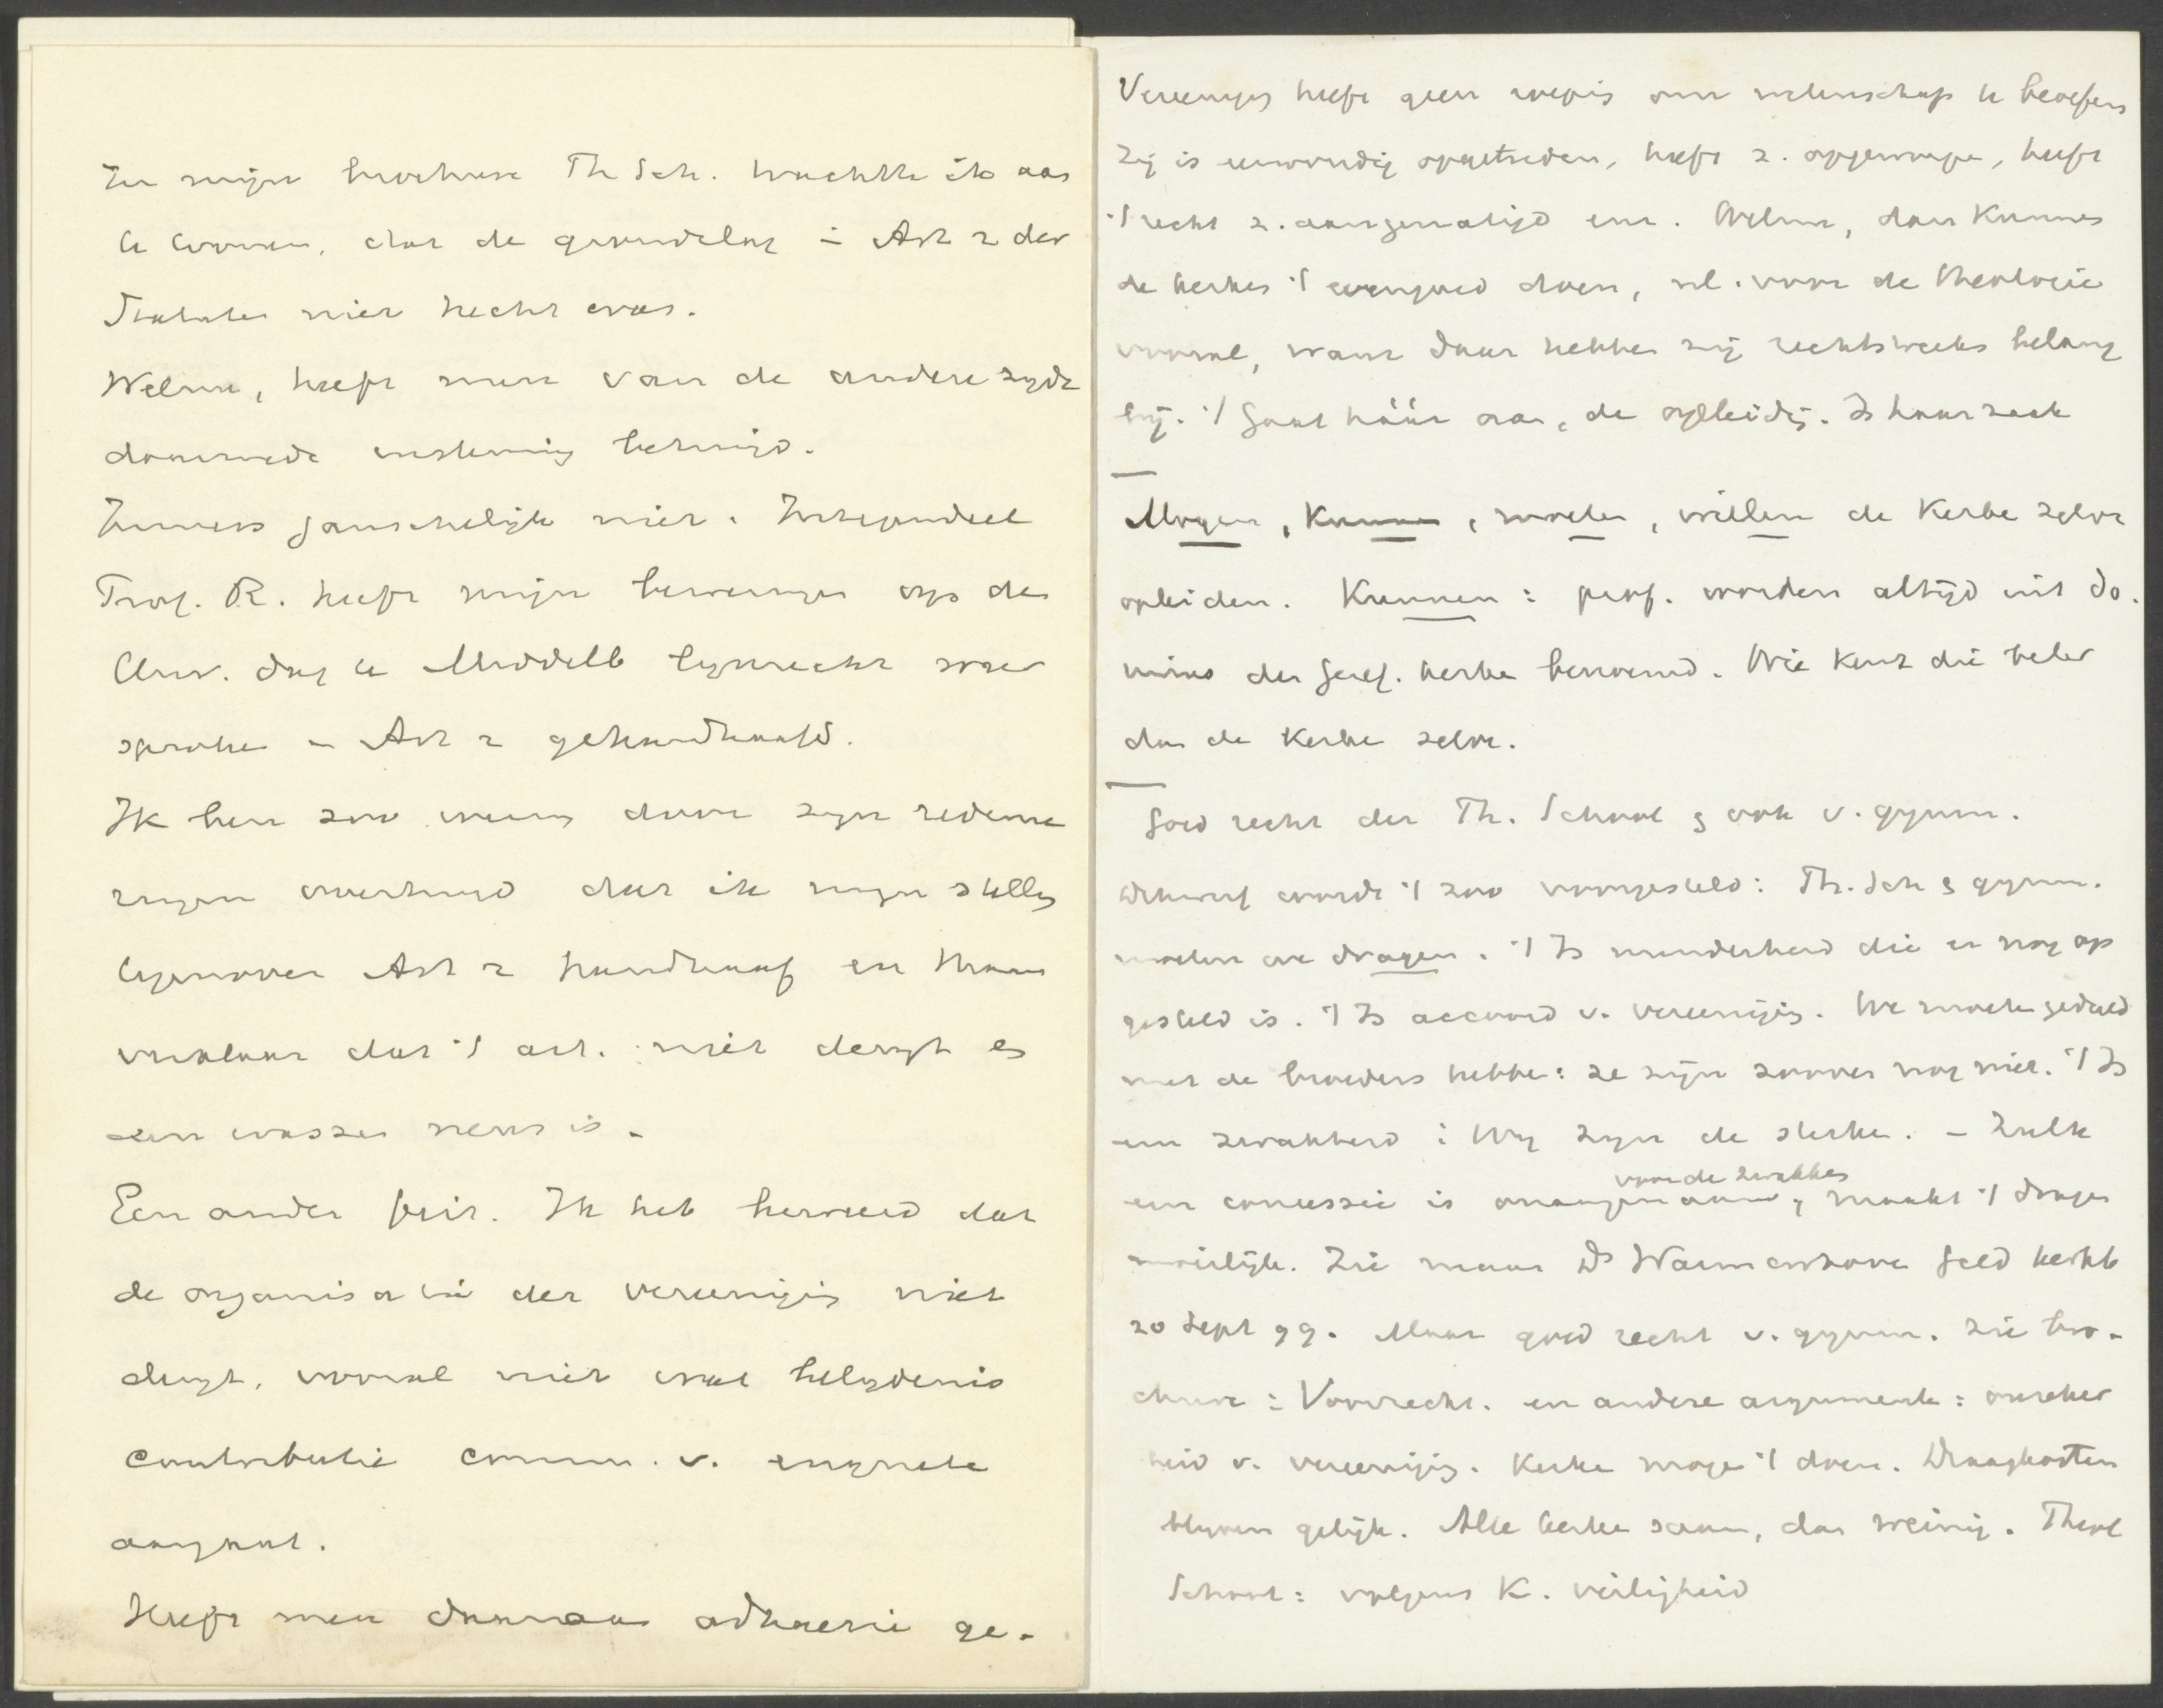 In mijn brochure Th Sch. trachtte ik aan
te toonen, dat de grondslag in Art 2 der
Statuten niet hecht was.
Welnu, heeft men van de andere zyde
daarmede instemming betuigd.
Immers ganschelijk niet. Integendeel
Prof. R. heeft mijn beweringen op den
Univ. dag te Middelb lynrecht weer
sproken en Art 2 gehandhaafd.
Ik ben zoo weinig door zyn redene
ringen overtuigd dat ik myn stelling
tegenover Art 2 handhaaf en thans
verklaar dat 't art. niet deugt en
een wassen neus is.
Een ander feit. Ik heb beweerd dat
de organisatie der vereeniging niet
deugt, vooral niet wat belydenis
contributie comm. v. enquete
aangaat.
Heeft men daaraan adhaesie ge-
Vereeniging heeft geen wetenschap te beoefenen
Zij is eenvoudig opgetreden, heeft z. opgeworpen, heeft
't recht z. aangematigd enz. Welnu, dan kunnen
de kerken 't evengoed doen, nl. voor de theologie
vooral, want daar hebben zij rechtstreeks belang
bij. 't Gaat háár aan, de opleiding. Is haar zaak
Mogen, Kunnen, moeten, willen de Kerken zelve
opleiden. Kunnen: prof. worden altijd uit do-
minos der Geref. kerken benoemd. Wie kent die beter
dan de Kerken zelve.
Goed recht der Th. School & ook v. gymn.
Dikwerf wordt 't zoo voorgesteld: Th. Sch & gymn.
moeten we dragen. 't Is minderheid die er nog op
gesteld is. 't Is accoord v. vereeniging. We moeten geduld
met de broeders hebben: ze zijn zoover nog niet. 't Is
een zwakheid: Wy zyn de sterken. - Zulk
een concessie is onaangenaam voor de zwakken, maakt 't dragen
moeilijk. Zie maar Ds Warmenhove Geld kerkb
20 Sept 99. Maar goed recht v. gymn. Zie bro-
chure: Voorrecht. en andere argumenten: onzeker
heid v. vereeniging. Kerken mogen 't doen. Draagkosten
blyven gelijk. Alle kerken saam, dan weinig. Theol
School: volgens K. veiligheid